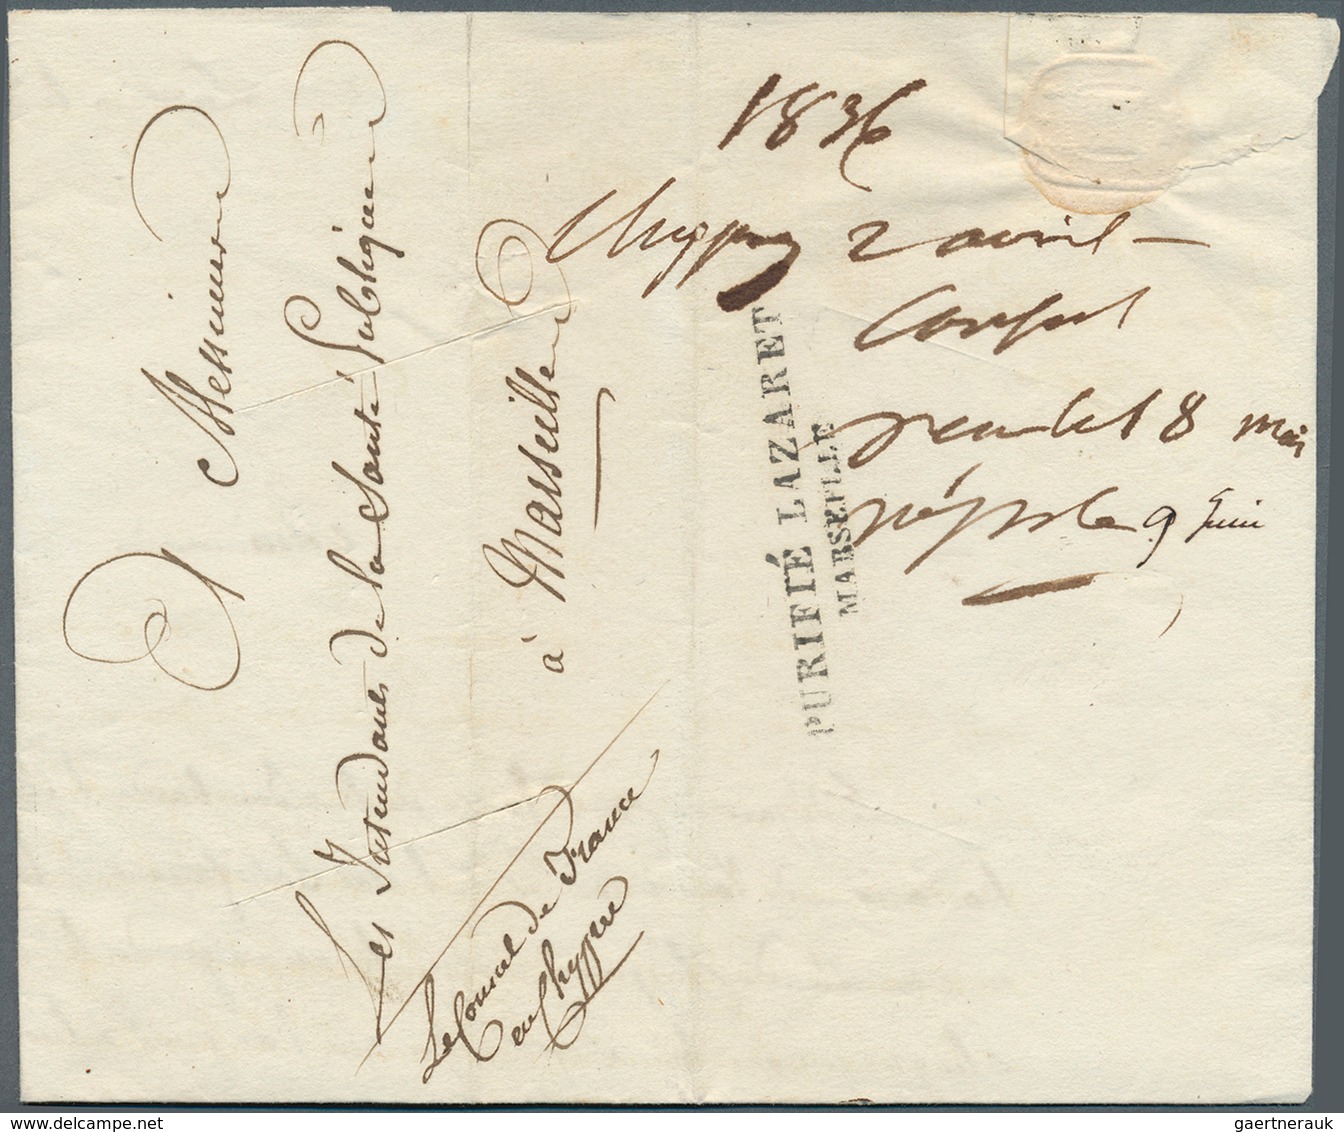 Messieurs
Les Intendants de la Santé Publique
à Marseille
Le Consul de France
en Chypre
1836
Chypre 2 avril
Consul
18 mai
rép. le 9 juin
PURIFIÉ LAZARET
MARSEILLE
gaertnerauk / delcampe.net